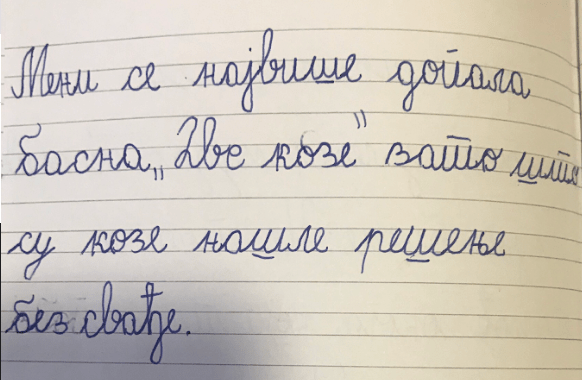 Мени се највише допала
басна „Две козе” зато што
су козе нашле решење
без свађе.